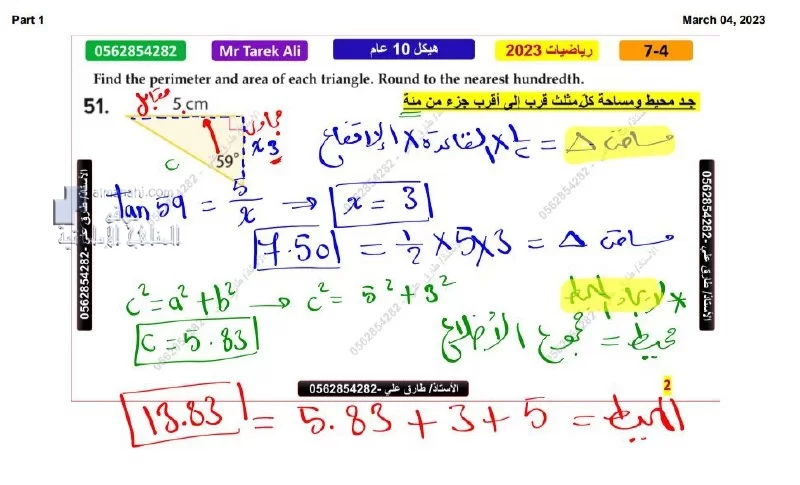 Part 1
March 04, 2023
0562854282
Mr Tarek Ali
هيكل 10 عام
رياضيات 2023
7-4
Find the perimeter and area of each triangle. Round to the nearest hundredth.
51.
جد محيط ومساحة كل مثلث قرب إلى أقرب جزء من مئة
مقابل
5 cm
مجاور
x 3
59°
c
مساحة Δ = 1/2 × القاعدة × الارتفاع
tan 59 = 5/x → x = 3
7.50 = 1/2 × 5 × 3 = مساحة Δ
c² = a² + b² → c² = 5² + 3²
c = 5.83
محيط = مجموع الأضلاع
الأستاذ/ طارق علي -0562854282
2
13.83 = 5.83 + 3 + 5 = المحيط
الأستاذ/ طارق علي -0562854282
الأستاذ/ طارق علي -0562854282
almanahj.com
المناهج الإماراتية